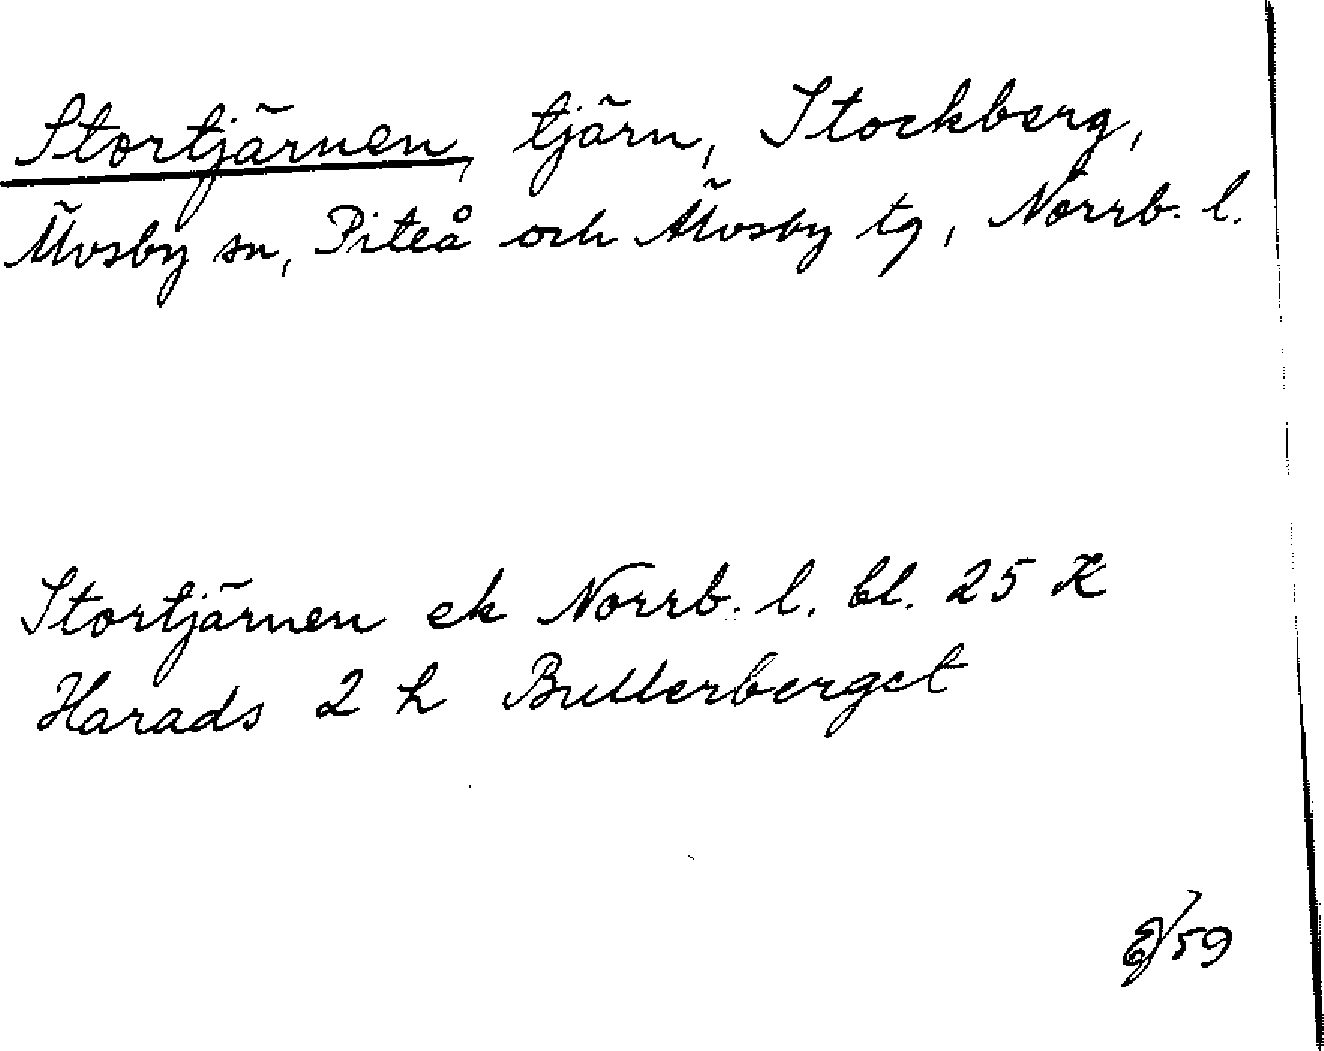 Stortjärnen, tjärn, Stockberg,
Älvsby sn, Piteå och Älvsby tg, Norrb. l.
Stortjärnen ek Norrb. l. bl. 25 K
Harads 2 h Bullerberget
/59